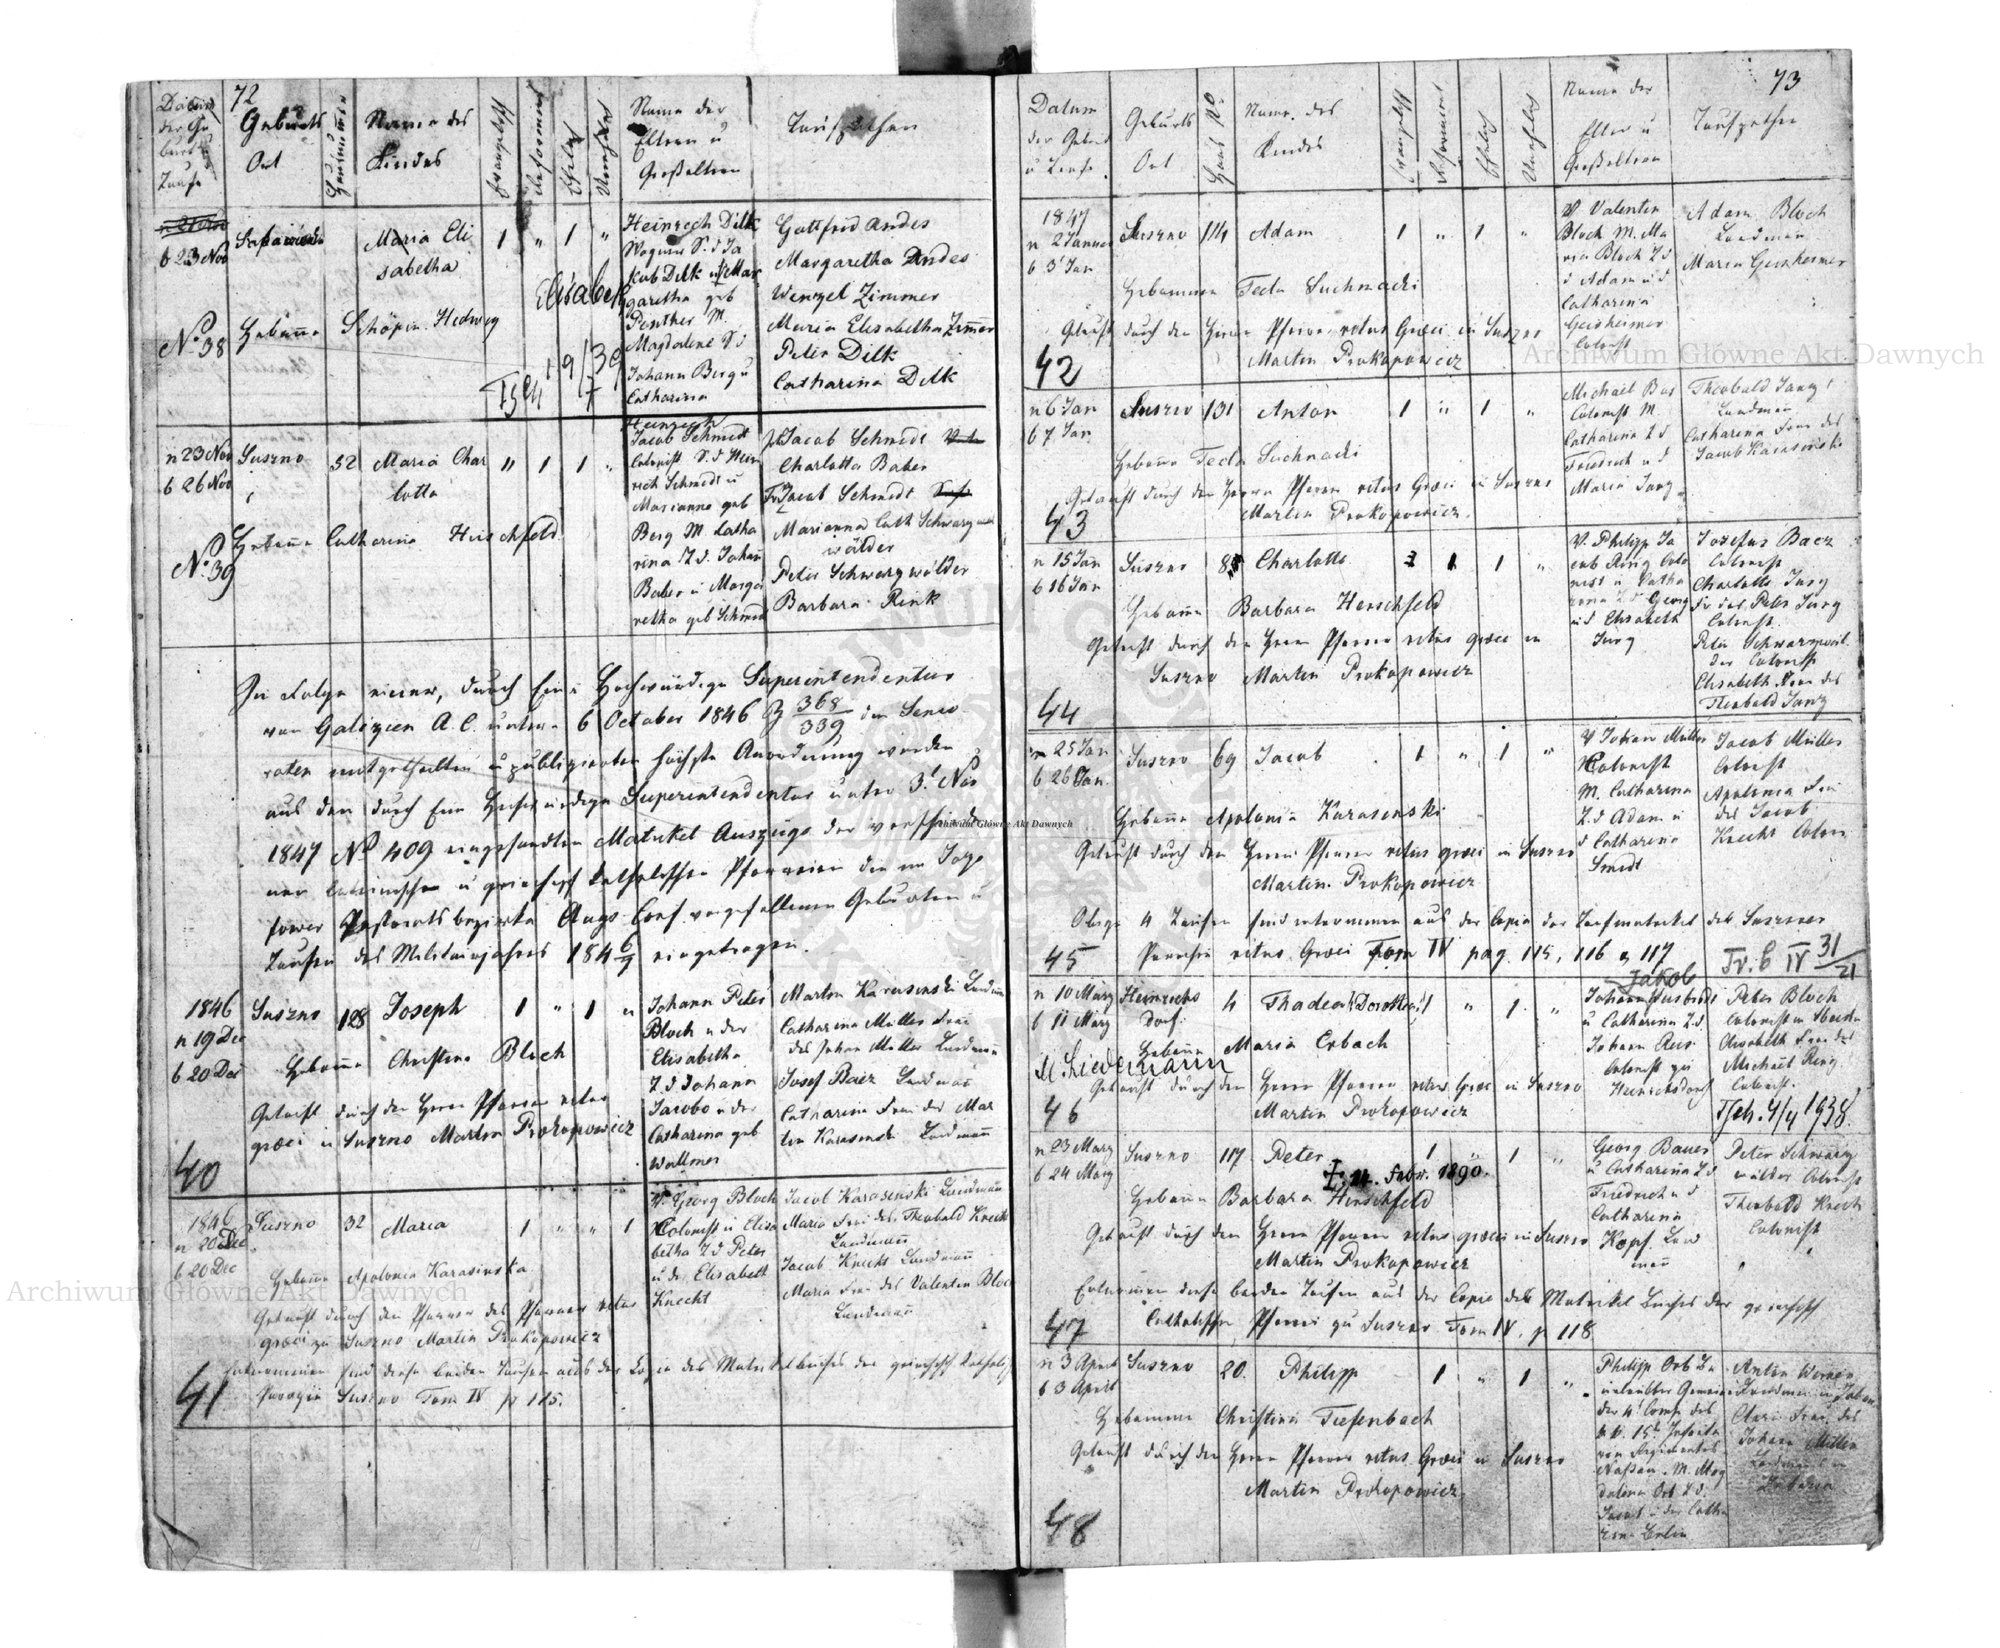 72
Geburts
Ort
Name des
Kindes
Name der
Eltern u
Großeltern
Taufpathen
b 23 Nov
Maria Eli
sabetha
1 " 1 "
Heinrich Dilk
Wagner S. d Ja
kob Dilk u Mar
garetha geb
Penther M.
Magdalena T d
Johann Berg u
Catharina
Elisabeth
Gottfried Andes
Margaretha Andes
Wenzel Zimmer
Maria Elisabetha Zimmer
Peter Dilk
Catharina Dilk
No 38
Hebamme Schöpin Hedwig
n 23 Nov
b 26 Nov
Suszno
52
Maria Char
lotta
" 1 1 "
Heinrich
Jacob Schmidt
Colonist S. d Hein
rich Schmidt u
Marianna geb
Berg M. Catha
rina T. d. Johann
Baber u Marga
retha geb Schmidt
Jacob Schmidt
Charlotta Baber
Jacob Schmidt
Marianna Cath Schwarz
wälder
Peter Schwarzwälder
Barbara Rink
No 39
Hebamme Catharina Hirschfeld
In Folge einer, durch Eine Hochwürdige Superintendentur
von Galizien A. C. unterm 6 October 1846 Z 368/339 den Senio
raten mitgetheilten u publizierten höchste Anordnung werden
aus den durch Eine Hochwürdige Superintendentur unter 3 Nov
1847 No 409 eingesandten Matrikel Auszüge der verschiede
nen lateinischen u griechisch katholischen Pfarreien die im
Pastorats bezirke Augs. Conf. vorgefallenen Geburten u
Taufen des Militairjahres 1846/7 eingetragen.
1846
n 19 Dec
b 20 Dec
Suszno
128
Joseph
1 " 1 "
Johann Peter
Bloch u der
Elisabetha
T. d Johann
Jacobo u der
Catharina geb
Wallmer
Martin Karasinski Landmann
Catharina Müller Frau
des Johan Müller Landmann
Josef Baez Landmann
Catharina Frau des Mar
tin Karasinski Landmann
Hebamme Christina Bloch
Getauft durch den Herrn Pfarrer ritus
graeci in Suszno Martin Prokopowicz
40
1846
n 20 Dec
b 20 Dec
Suszno
32
Maria
1 " " 1
V. Georg Bloch
Colonist u Elisa
betha T. d Peter
u der Elisabeth
Knecht
Jacob Karasinski Landmann
Maria Frau des Theobald Knecht
Landmann
Jacob Knecht Landmann
Maria Frau des Valentin Bloch
Landmann
Hebamme Apolonia Karasinska
Getauft durch den Pfarrer des Pfarrer ritus
graeci zu Suszno Martin Prokopowicz
41
Entnommen sind diese beiden Taufen aus der Copia des Matrikelbuches der griechisch katholisch
Parogie Suszno Tom IV p 115.
73
Datum
der Geburt
u Taufe
Geburts
Ort
Haus No
Name des
Kindes
Name der
Elter u
Großeltern
Taufpathen
1847
n 2 Januar
b 3 Jan
Suszno
114
Adam
1 " 1 "
V Valentin
Bloch M. Ma
ria Bloch T d
d Adam u d
Catharina
Geisheimer
Colonist
Adam Bloch
Landman
Maria Geisheimer
Hebamme Tecla Suchnacki
Getauft durch den Herrn Pfarrer ritus Graeci in Suszno
Martin Prokopowicz
42
n 6 Jan
b 7 Jan
Suszno
131
Anton
1 " 1 "
Michael Bas
Colonist M.
Catharina T d
Friedrich u d
Maria Jung
Theobald Jung
Landman
Catharina Frau des
Jacob Karasinski
Hebamme Tecla Suchnacki
Getauft durch den Herrn Pfarrer ritus Graeci in Suszno
Martin Prokopowicz.
43
n 15 Jan
b 16 Jan
Suszno
Charlotte
1 1 "
V. Philipp Ja
cob Ring Colo
nist u Catha
rina T. d Georg
u d Elisabeth
Jung
Josefus Baez
Colonist
Charlotte Jung
Fr des Peter Jung
Colonist.
Peter Schwarzwäl
der Colonist
Elisabeth Frau des
Theobald Jung
Hebamme Barbara Herschfeld
Getauft durch den Herrn Pfarrer ritus graeci in
Suszno Martin Prokopowicz
44
n 25 Jan
b 26 Jan.
Suszno
69
Jacob
1 " 1 "
V Johann Müller
Colonist
M. Catharina
T. d Adam u
d Catharina
Smidt
Jacob Müller
Colonist
Apolonia Frau
des Jacob
Knecht Colon
Hebamme Apolonia Karasinski
Getauft durch den Herrn Pfarrer ritus graeci in Suszno
Martin Prokopowicz
Obige 4 Taufen sind entnommen aus der Copia der Taufmatrikel der Suszner
45
Parochie ritus Graeci Tom IV pag. 115, 116 u 117
Tr. b IV 31/21
n 10 März
b 11 März
Heinrichs
dorf.
4
Thadea (Dorothea)
1 " 1 "
Jakob
Johann
u Catharina T. d.
Johann Reis
Colonist zu
Heinrichsdorf
Peter Bloch
Colonist
Elisabeth Frau des
Michael Ring
Colonist.
Hebamme Maria Erbach
Getauft durch den Herrn Pfarrer ritus Graeci in Suszno
Martin Prokopowicz
46
Tsch. 4/4 1938.
n 23 März
b 24 März
Suszno
117
Peter
1 " 1 "
14. Febr. 1890.
Georg Bauer
u Catharina T. d
Friedrich u d
Catharina
Kopf. Land
mann
Peter Schwarz
wälder Colonist
Theobald Knecht
Colonist
Hebamme Barbara Hirschfeld
Getauft durch den Herrn Pfarrer ritus graeci in Suszno
Martin Prokopowicz
Entnommen diese beiden Taufen aus der Copie des Matrikel Buches der griechisch
47
Catholischen Pfarrei zu Suszno Tom IV. p 118
n 3 April
b 3 April
Suszno
20.
Philipp
1 " 1 "
Philipp Orb Be
urlaubter Gemeiner
der 4 Comp des
k k. 15t Infante
rie Regimentes
Nassau. M. Mag
dalena Orb T. d.
Jacob u der Catha
rina
Anton Werner
Clara Frau des
Johann Müller
Hebamme Christina Tiefenbach
Getauft durch den Herrn Pfarrer ritus Graeci in Suszno
Martin Prokopowicz
48
Archiwum Główne Akt Dawnych
Archiwum Główne Akt Dawnych
Archiwum Główne Akt Dawnych